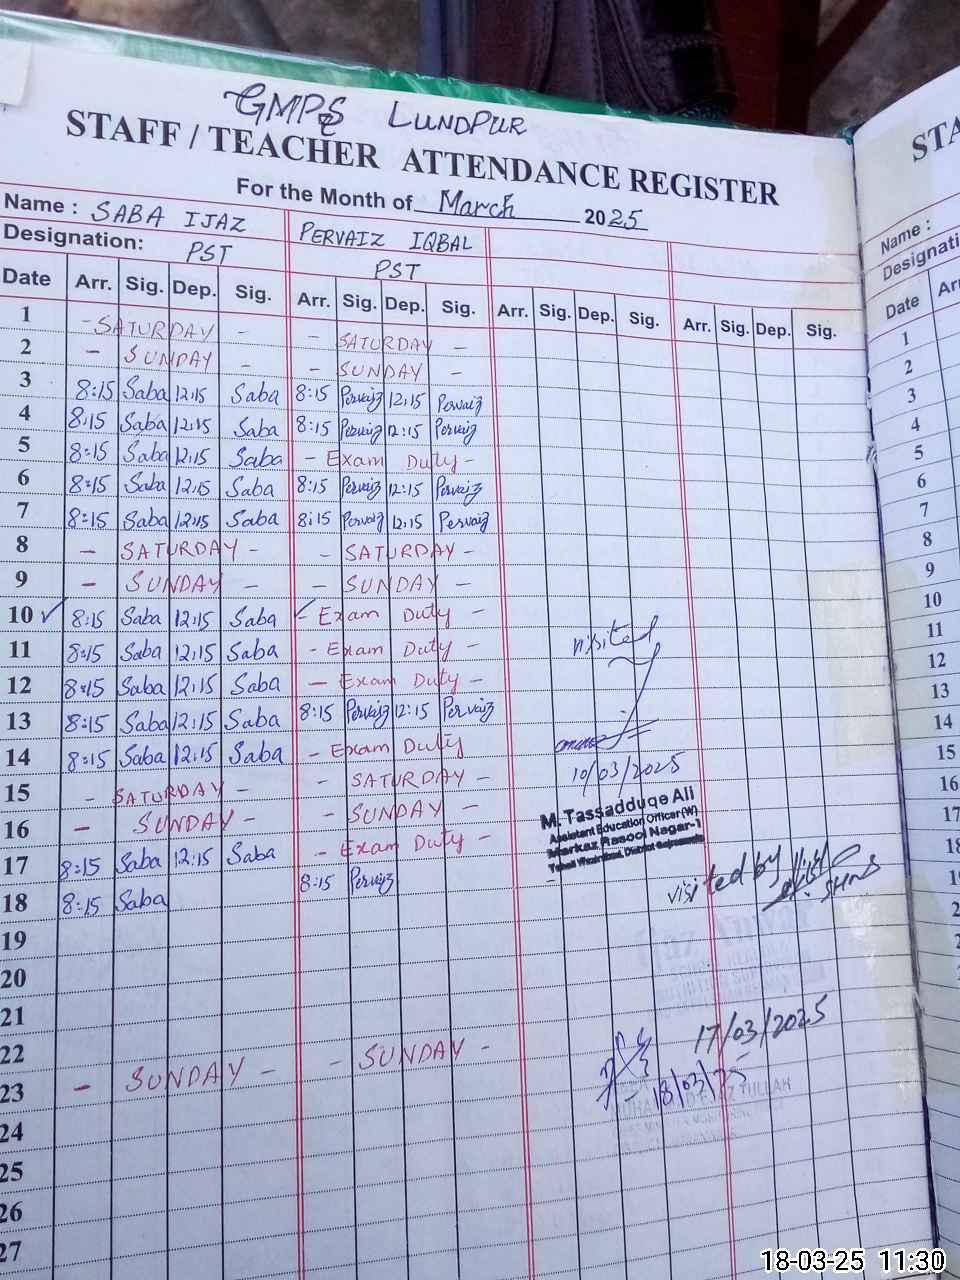 GMPS LUNDPUR
STAFF / TEACHER ATTENDANCE REGISTER
For the Month of March 2025
Name : SABA IJAZ PERVAIZ IQBAL
Designation: PST PST
Date Arr. Sig. Dep. Sig. Arr. Sig. Dep. Sig. Arr. Sig. Dep. Sig. Arr. Sig. Dep. Sig.
1 - SATURDAY - - SATURDAY -
2 - SUNDAY - - SUNDAY -
3 8:15 Saba 12:15 Saba 8:15 Pervaiz 12:15 Pervaiz
4 8:15 Saba 12:15 Saba 8:15 Pervaiz 12:15 Pervaiz
5 8:15 Saba 12:15 Saba - Exam Duty -
6 8:15 Saba 12:15 Saba 8:15 Pervaiz 12:15 Pervaiz
7 8:15 Saba 12:15 Saba 8:15 Pervaiz 12:15 Pervaiz
8 - SATURDAY - - SATURDAY -
9 - SUNDAY - - SUNDAY -
10 ✓ 8:15 Saba 12:15 Saba ✓ - Exam Duty -
11 8:15 Saba 12:15 Saba - Exam Duty -
12 8:15 Saba 12:15 Saba - Exam Duty -
13 8:15 Saba 12:15 Saba 8:15 Pervaiz 12:15 Pervaiz
14 8:15 Saba 12:15 Saba - Exam Duty
15 - SATURDAY - - SATURDAY -
16 - SUNDAY - - SUNDAY -
17 8:15 Saba 12:15 Saba - Exam Duty -
18 8:15 Saba 8:15 Pervaiz
19
20
21
22
23 - SUNDAY - - SUNDAY -
24
25
26
27
visited
10/03/2025
M. Tassadduqe Ali
Assistant Education Officer (W)
Markaz Rasool Nagar-1
visited by
17/03/2025
18/03/25
STA
Name :
Designati
Date Arr
1
2
3
4
5
6
7
8
9
10
11
12
13
14
15
16
17
18
18-03-25 11:30